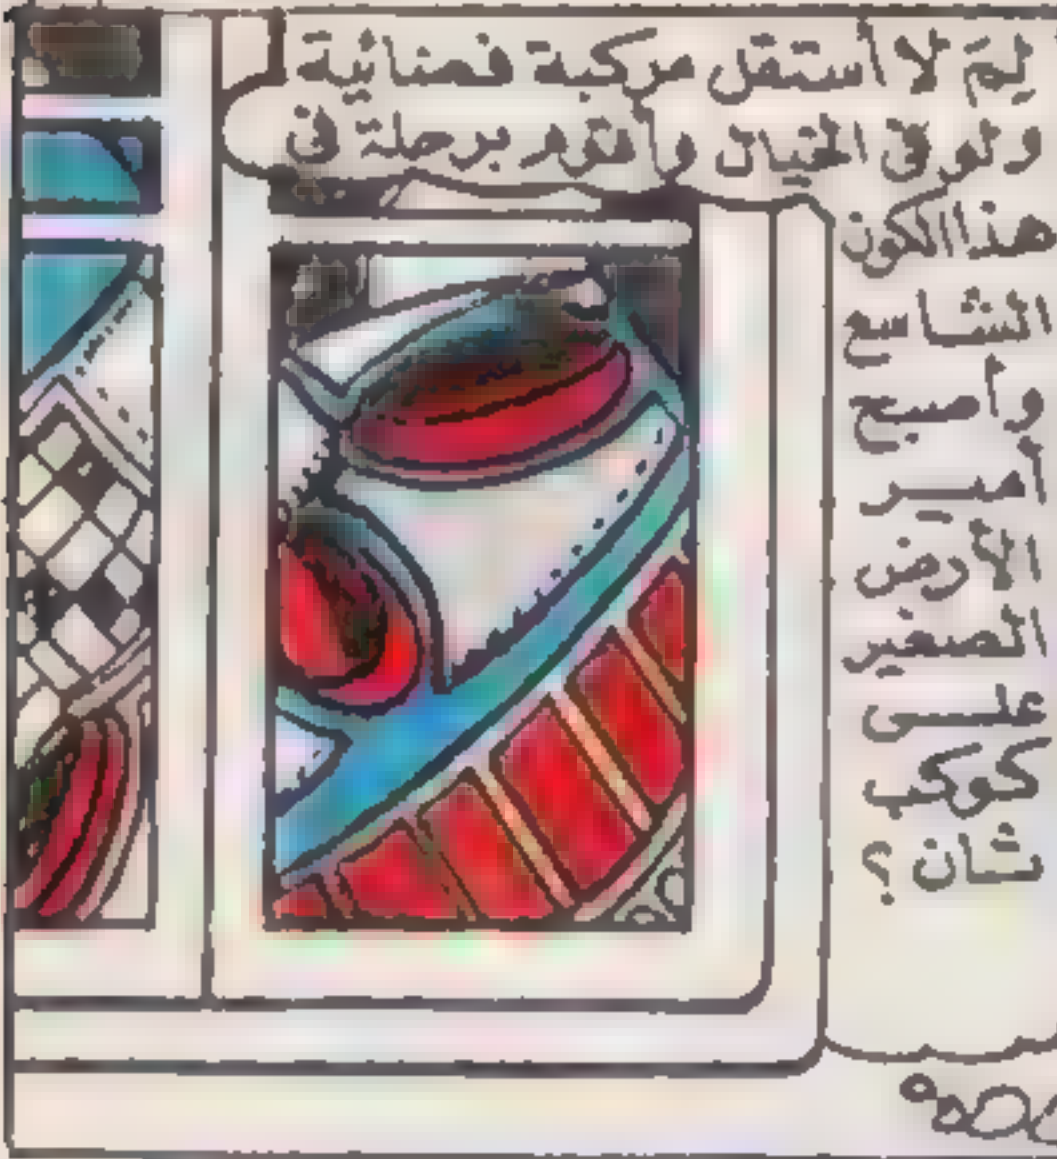 لِمَ لا أستقل مركبة فضائية
ولو في الخيال وأقوم برحلة في
هذا الكون
الشاسع
وأصبح
أمير
الأرض
الصغير
على
كوكب
ثان ؟